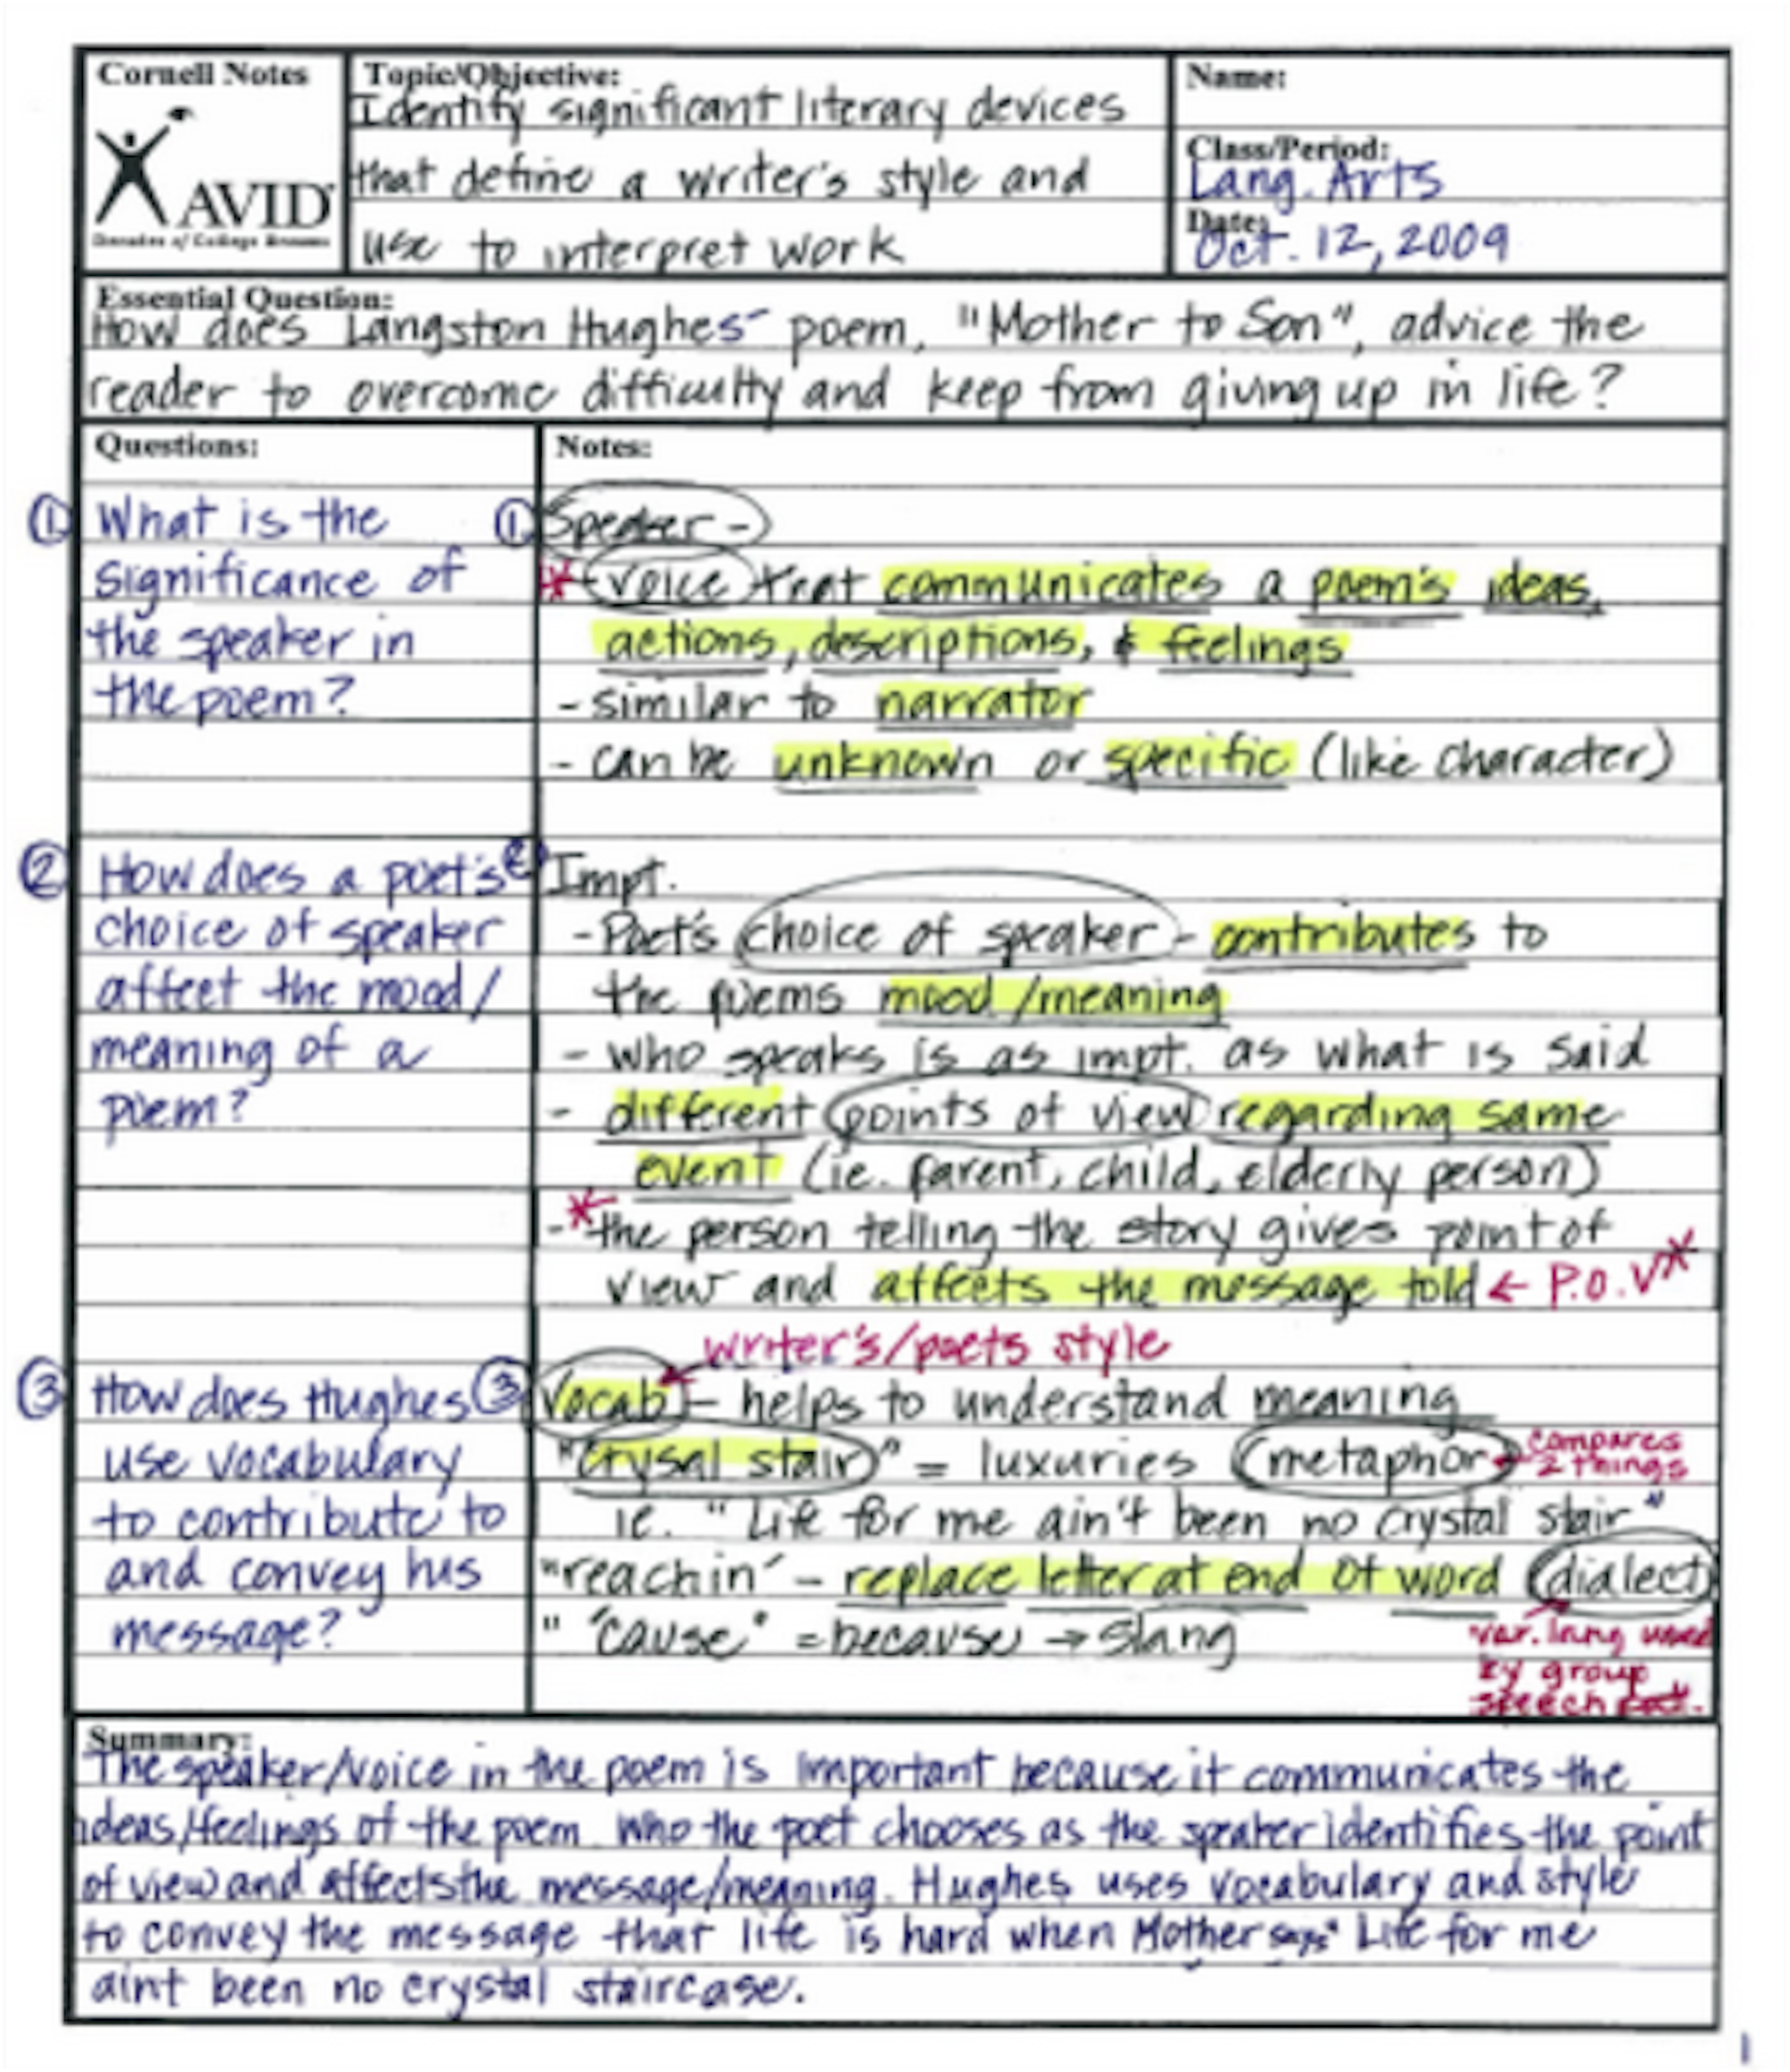 Cornell Notes
AVID
Decades of College Dreams
Topic/Objective:
Identify significant literary devices
that define a writer's style and
use to interpret work
Name:
Class/Period:
Lang. Arts
Date:
Oct. 12, 2009
Essential Question:
How does Langston Hughes' poem, "Mother to Son", advice the
reader to overcome difficulty and keep from giving up in life?
Questions:
① What is the
significance of
the speaker in
the poem?
② How does a poet's
choice of speaker
affect the mood/
meaning of a
poem?
③ How does Hughes
use vocabulary
to contribute to
and convey his
message?
Notes:
① Speaker -
* - voice that communicates a poem's ideas,
actions, descriptions, & feelings
- similar to narrator
- can be unknown or specific (like character)
② Impt.
- Poet's choice of speaker - contributes to
the poems mood/meaning
- who speaks is as impt. as what is said
- different points of view regarding same
event (ie. parent, child, elderly person)
- * the person telling the story gives point of
view and affects the message told ← P.O.V *
writer's/poets style
③ Vocab - helps to understand meaning
"Crysal stair" = luxuries (metaphor) compares
2 things
ie. "Life for me ain't been no crystal stair"
"reachin' - replace letter at end of word (dialect)
" "cause" = because → slang
var. lang used
by group
speech pat.
Summary:
The speaker/voice in the poem is important because it communicates the
ideas/feelings of the poem. Who the poet chooses as the speaker identifies the point
of view and affects the message/meaning. Hughes uses vocabulary and style
to convey the message that life is hard when Mother says "Life for me
aint been no crystal staircase.
1